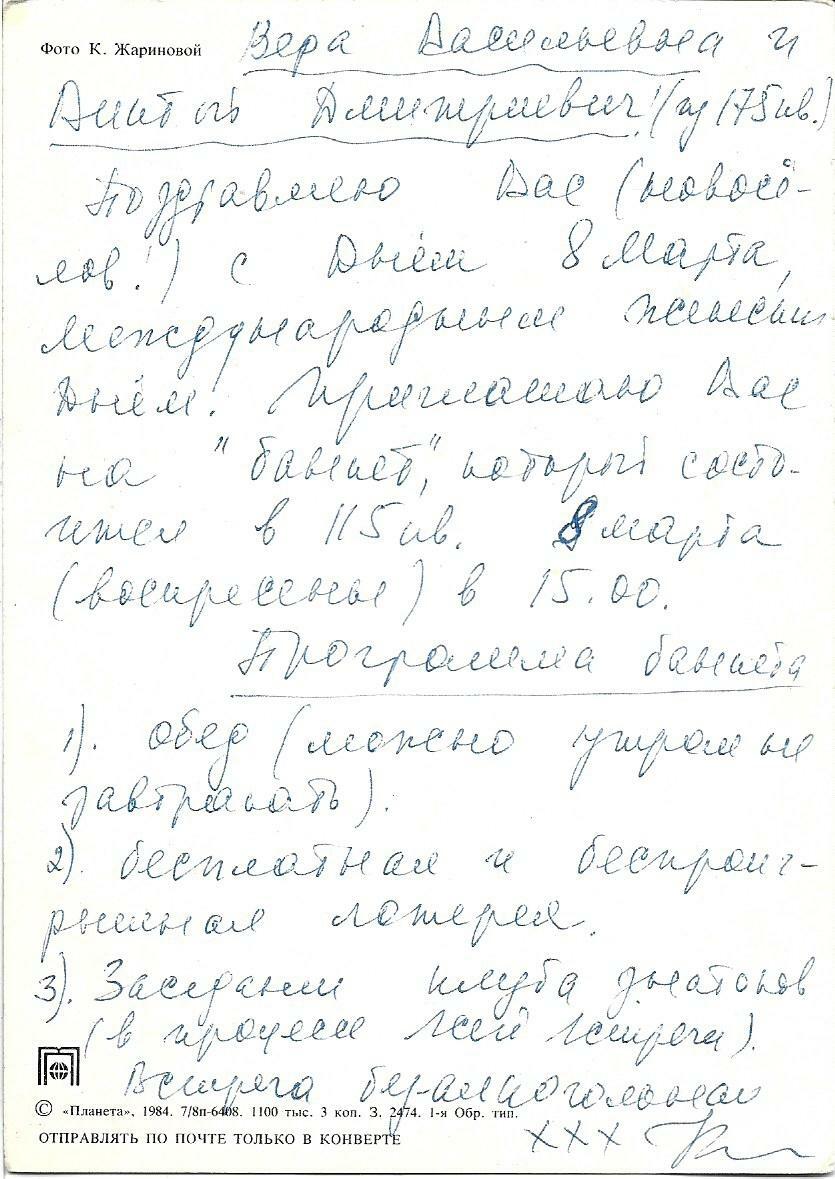 Фото К. Жариновой
Вера Васильевна и
Анатолий Дмитриевич! (из 175 кв.)
Поздравляю Вас (новосё-
лов!) с Днём 8 Марта,
международным женским
Днём! Приглашаю Вас
на "банкет", который состо-
ится в 115 кв. 8 марта
(воскресенье) в 15.00.
Программа банкета
1). обед (можно утром не
завтракать).
2). бесплатная и беспроиг-
рышная лотерея.
3). Заседание клуба знатоков
(в процессе всей встречи).
Встреча без-алкогольная
© «Планета», 1984. 7/8п-6408. 1100 тыс. 3 коп. З. 2474. 1-я Обр. тип.
ОТПРАВЛЯТЬ ПО ПОЧТЕ ТОЛЬКО В КОНВЕРТЕ
ХХХ